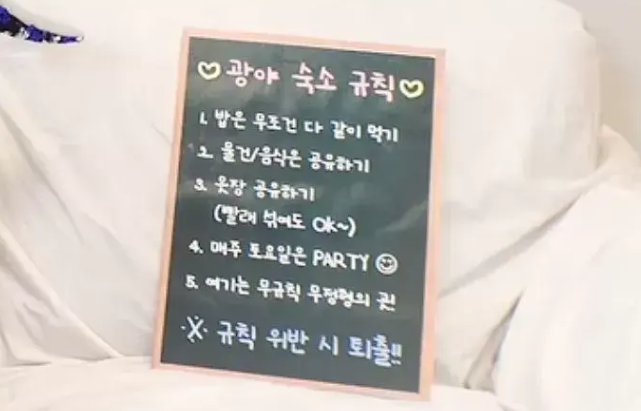 광야 숙소 규칙
1. 밥은 무조건 다 같이 먹기
2. 물건/음식은 공유하기
3. 옷장 공유하기
(빨래 섞여도 Ok~)
4. 매주 토요일은 PARTY ☺
5. 여기는 무규칙 무정형의 곳!
※ 규칙 위반 시 퇴출!!